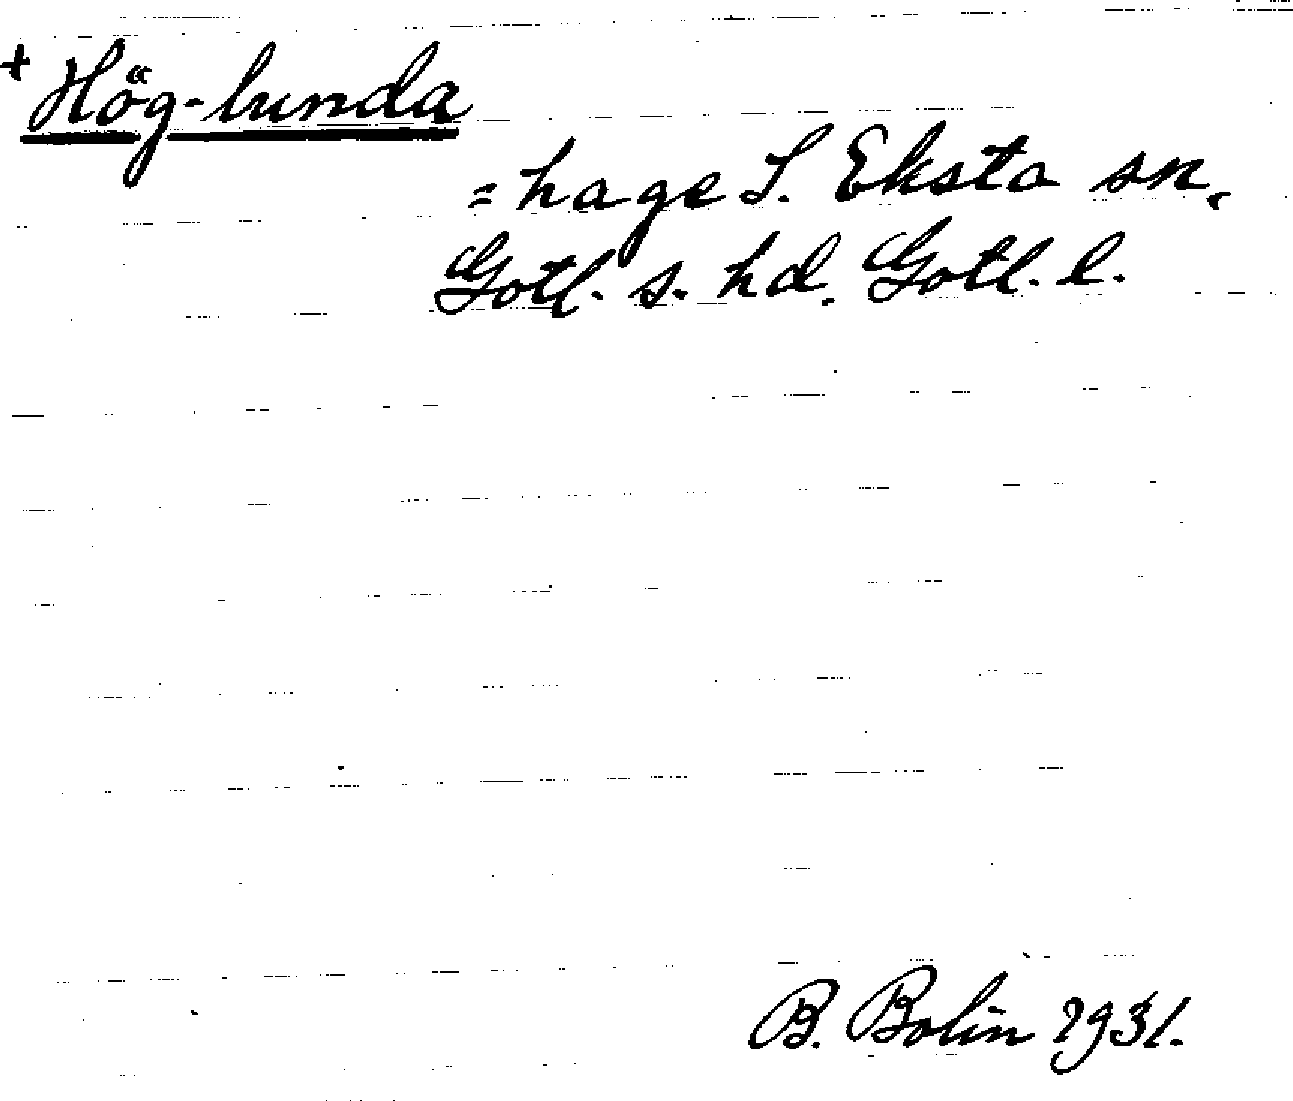 + Hög-lunda
= hage S. Eksta sn.
Gotl. s. hd. Gotl. l.
B. Bolin 1931.